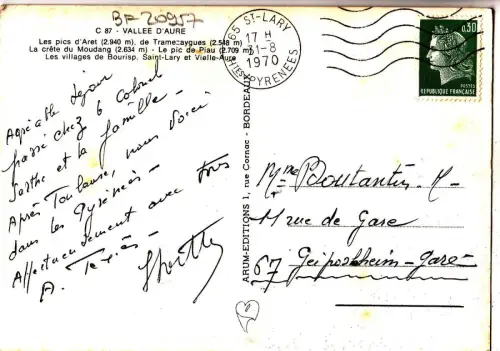 BF 20957
C 87 - VALLEE D'AURE
Les pics d'Aret (2.940 m), de Tramezaygues (2.548 m)
La crête du Moudang (2.634 m) - Le pic de Piau (2.709 m)
Les villages de Bourisp, Saint-Lary et Vielle-Aure
65 ST-LARY
17 H
31-8
1970
HTES PYRENEES
0,50
POSTES
REPUBLIQUE FRANÇAISE
Agréable séjour
passé chez le Colonel
et la famille -
Après Toulouse, nous voici
dans les Pyrénées -
Affectueusement avec tous
A.
ARDM-EDITIONS 1, rue Cornac - BORDEAUX
Mme Boutantin M -
11 rue de Gare
67 Geispolsheim-Gare-